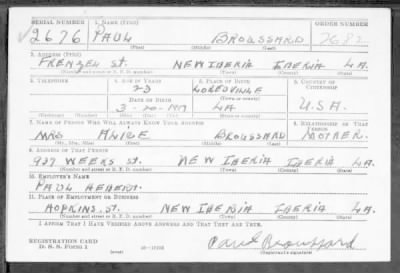 SERIAL NUMBER 1. NAME (Print) ORDER NUMBER
2676 PAUL BROUSSARD 2682
(First) (Middle) (Last)
2. ADDRESS (Print)
FRENZEL St. NEW IBERIA IBERIA LA.
(Number and street or R. F. D. number) (Town) (County) (State)
3. TELEPHONE 4. AGE IN YEARS 5. PLACE OF BIRTH 6. COUNTRY OF CITIZENSHIP
23 LOREAUVILLE
(Town or county)
DATE OF BIRTH
3-20-1917 LA U.S.A.
(Mo.) (Day) (Yr.) (State or country)
7. NAME OF PERSON WHO WILL ALWAYS KNOW YOUR ADDRESS 8. RELATIONSHIP OF THAT PERSON
MRS ALICE BROUSSARD MOTHER.
(Mr., Mrs., Miss) (First) (Middle) (Last)
9. ADDRESS OF THAT PERSON
927 WEEKS St. NEW IBERIA IBERIA LA.
(Number and street or R. F. D. number) (Town) (County) (State)
10. EMPLOYER'S NAME
PAUL HEBERT.
11. PLACE OF EMPLOYMENT OR BUSINESS
HOPKINS. St. NEW IBERIA IBERIA LA.
(Number and street or R. F. D. number) (Town) (County) (State)
I AFFIRM THAT I HAVE VERIFIED ABOVE ANSWERS AND THAT THEY ARE TRUE.
REGISTRATION CARD
D. S. S. Form 1 (over) Paul Broussard
(Registrant's signature)